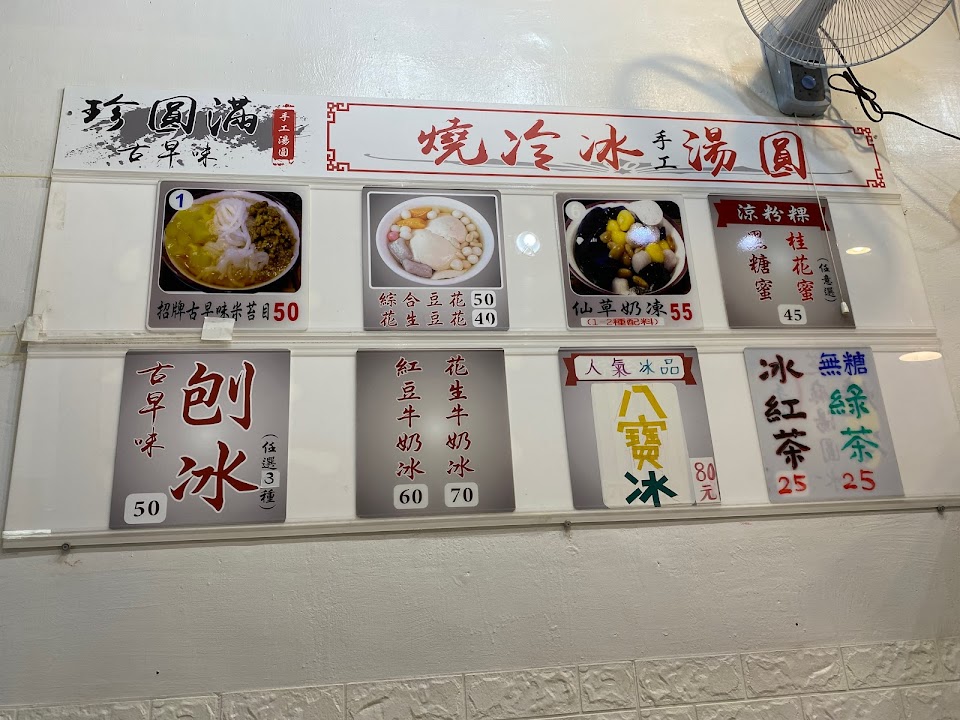 珍圓滿
古早味
手工湯圓
燒冷冰手工湯圓
1
招牌古早味米苔目50
綜合豆花50
花生豆花40
仙草奶凍55
(1-2種配料)
涼粉粿
桂花蜜
黑糖蜜
(任意選)
45
古早味
刨冰
(任選3種)
50
花生牛奶冰
70
紅豆牛奶冰
60
人氣冰品
八寶冰
80元
無糖綠茶
25
冰紅茶
25